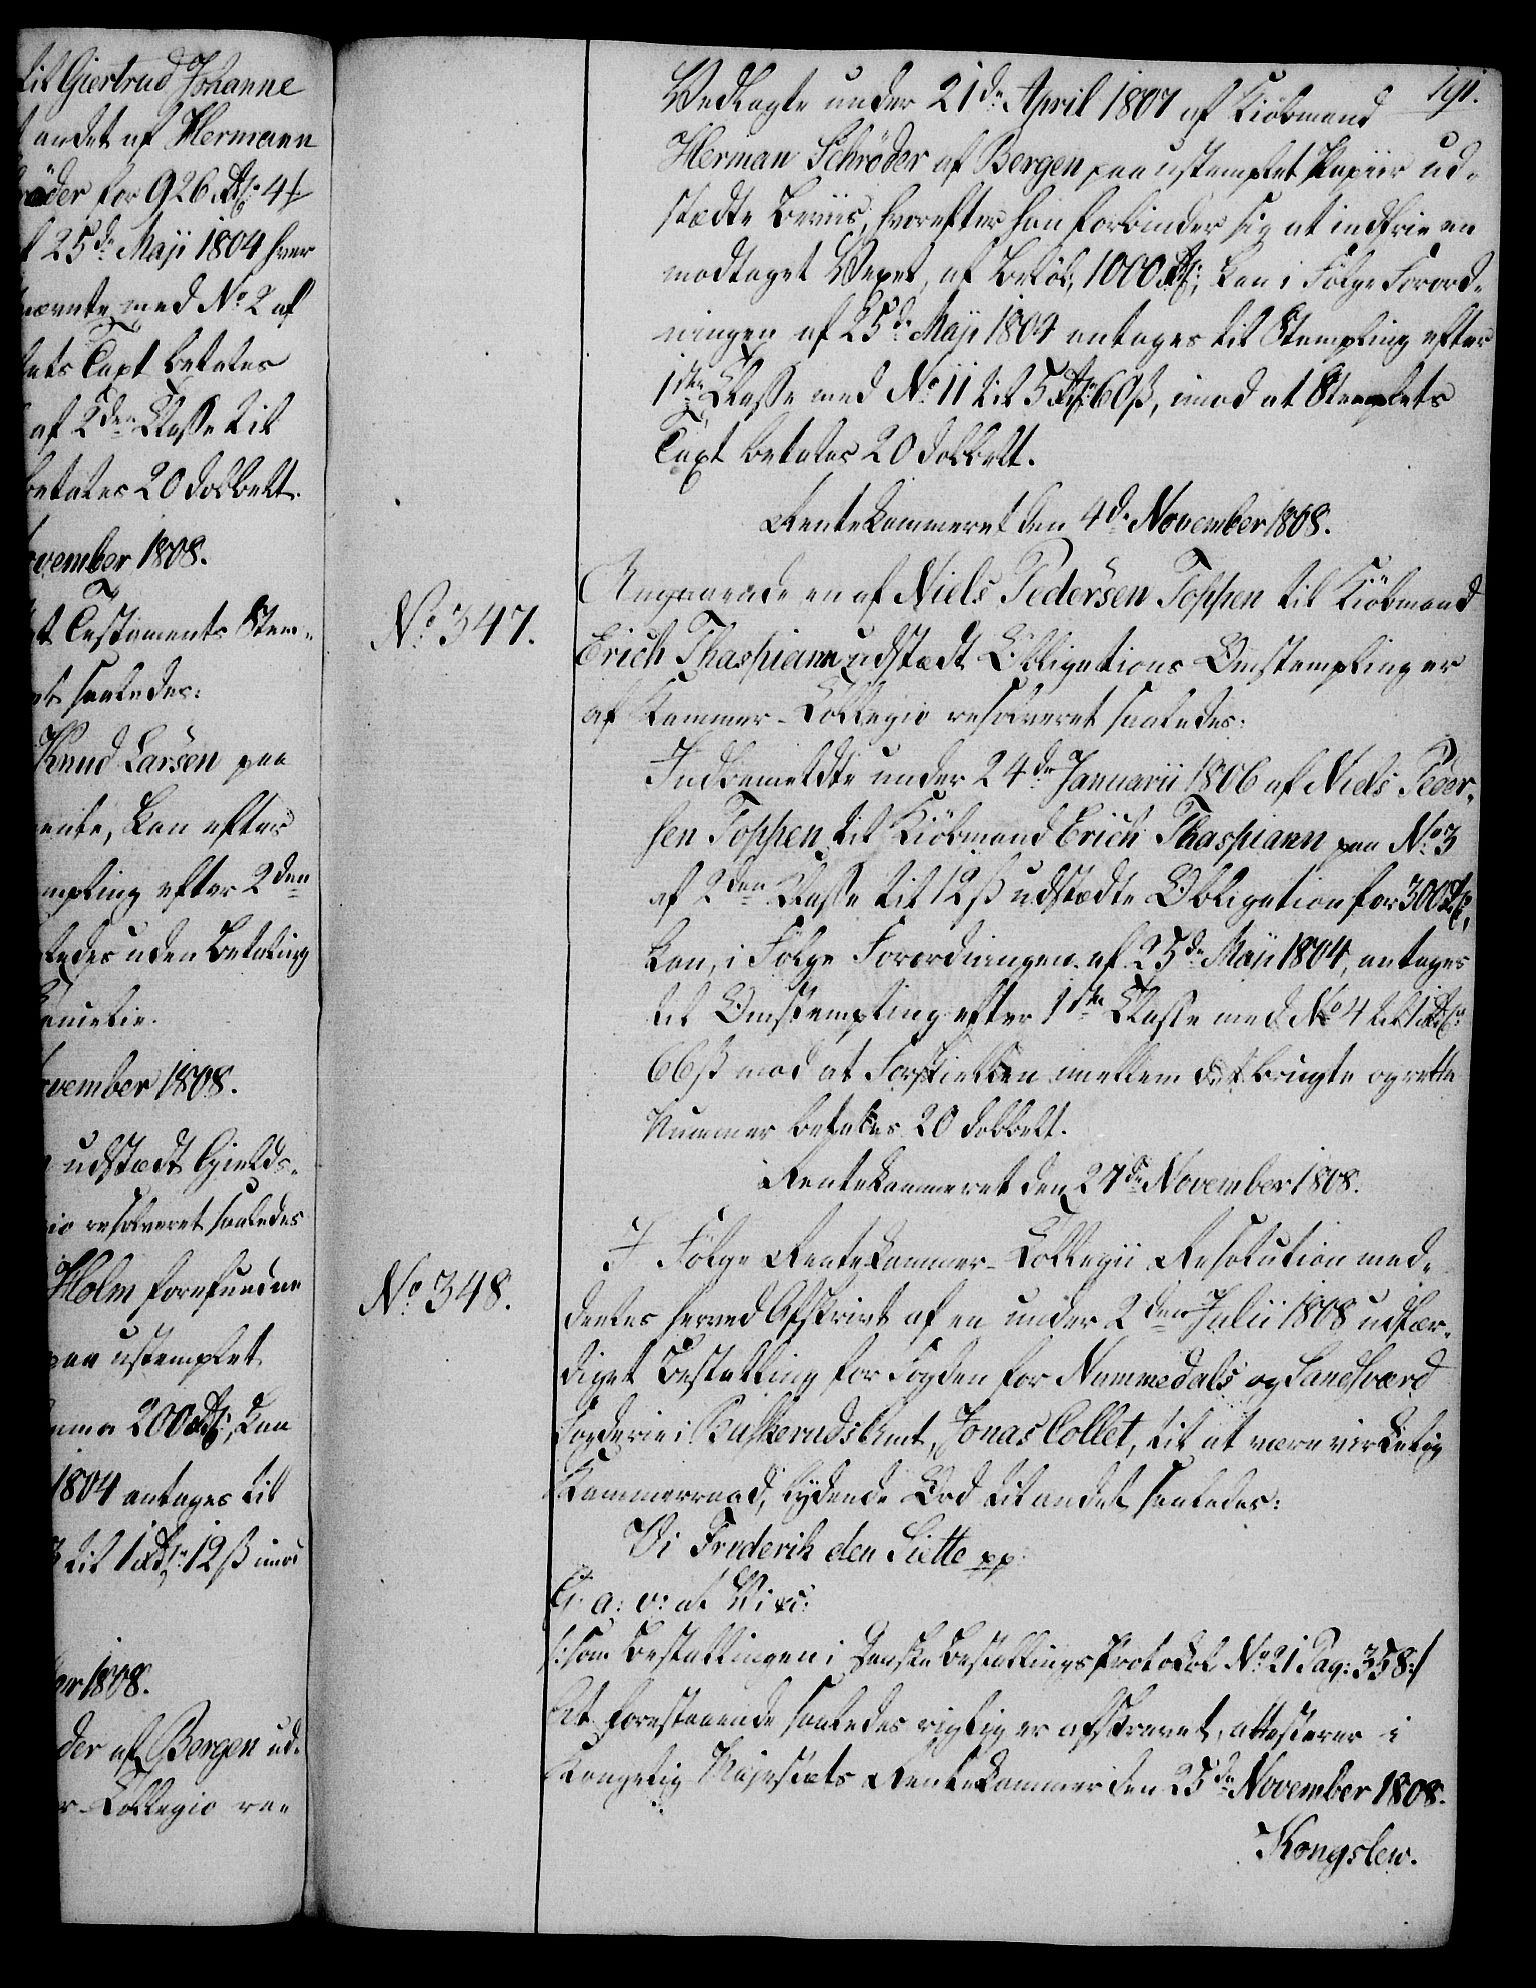 til Giertrud Johanne
andet af Hermann
röder for 926 Rdr 4 ß
25de Maji 1804 hver
nævnte med No 2 af
lets Taxt betales
af 2den Classe til
betales 20 dobbelt.
ovember 1808.
et Testaments Stem-
et saaledes:
Knud Larsen paa
ente, kan efter
mpling efter 2den
ledes uden Betaling
vember 1808.
udstædt Gields-
io resolveret saaledes
Holm forefundne
paa ustemplet
umma 200 Rdr, kan
1804 antages til
3 til 1 Rdr 12 ß imod
er 1808.
der af Bergen ud-
r-Collegio re-
191.
Vedlagte under 21de April 1807 af Kiöbmand
Herman Schröder af Bergen paa ustemplet Papiir ud-
stædte Beviis, hvorefter han forbinder sig at indfrie en
modtaget Vexel, af Belöb, 1000 Rdr, kan i Fölge Forord-
ningen af 25de Maji 1804 antages til Stempling efter
1ste Classe med No 11 til 5 Rdr 60 ß, imod at Stemplets
Taxt betales 20 dobbelt.
Rentekammeret den 4de November 1808.
No 347.
Angaaende en af Niels Pedersen Toppen til Kiöbmand
Erich Thaspiann udstædt Obligations Omstempling er
af Kammer-Collegio resolveret saaledes:
Indbemeldte under 24de Januarii 1806 af Niels Peder-
sen Toppen til Kiöbmand Erich Thaspiann paa No 3
af 2den Classe til 12 ß udstædte Obligation for 300 Rdr,
kan, i Fölge Forordningen af 25de Maji 1804, antages
til Omstempling efter 1ste Classe med No 4 til 1 Rdr
66 ß mod at Forskiellen imellem det brugte og rette
Nummer betales 20 dobbelt.
Rentekammeret den 27de November 1808.
No 348.
I Fölge Rentekammer-Collegii Resolution med-
deeles herved Afskrivt af en under 2den Julii 1808 udfær-
diget Bestalling for Fogden for Nummedals og Sandsværd
Fogderie i Buskeruds Amt, Jonas Collet, til at være virkelig
Kammerraad, lydende Ord til andet saaledes:
Vi Frederik den Siette pp:
G: a: v: at Vi &c:
/: som Bestallingen i Danske Bestallings Protokol No 21 Pag: 358 :/
At forestaaende saaledes rigtig er afskrevet, attesterer i
Kongelig Majestæts Rentekammer den 25de November 1808.
Kongslew.